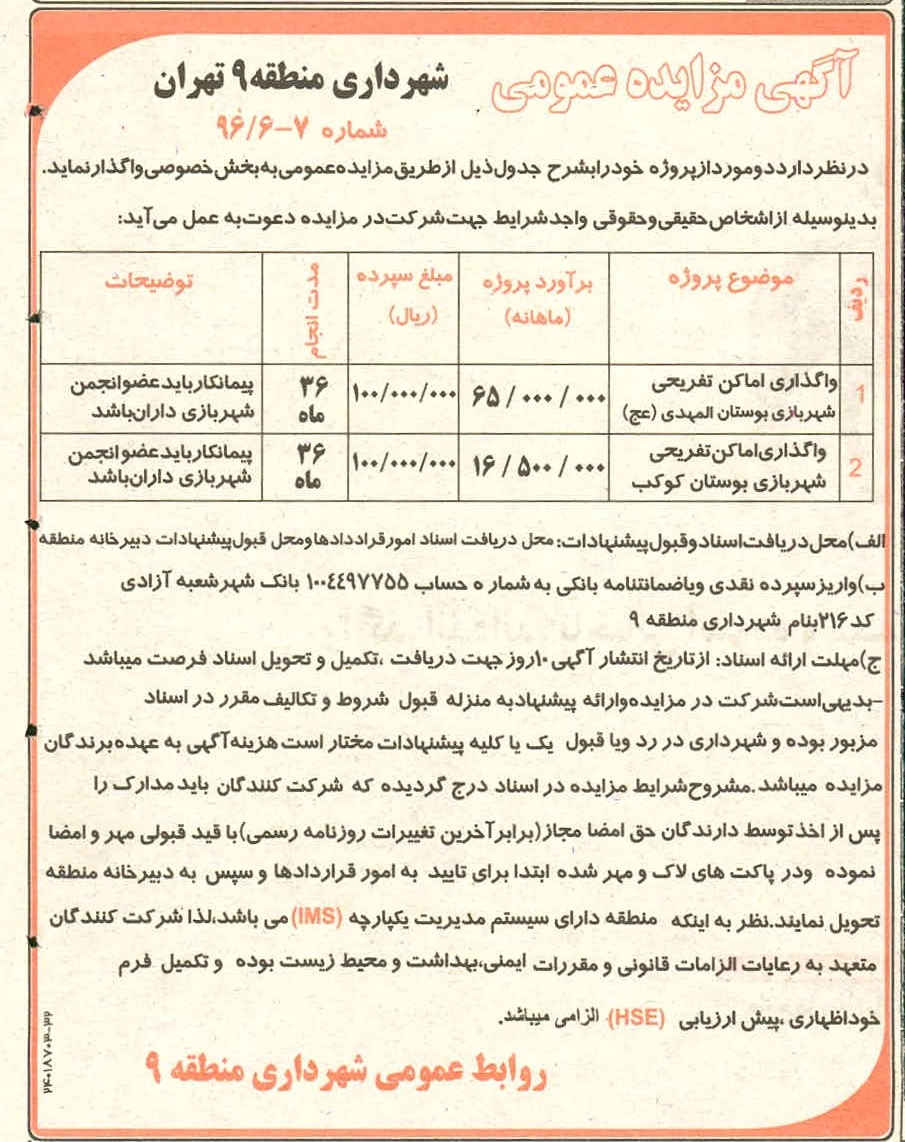 آگهی مزایده عمومی شهرداری منطقه ۹ تهران
شماره ۷-۹۶/۶
درنظردارددوموردازپروژه خودرابشرح جدول‌ذیل ازطریق‌مزایده‌عمومی‌به‌بخش‌خصوصی‌واگذارنماید.
بدینوسیله ازاشخاص‌حقیقی‌وحقوقی واجدشرایط جهت‌شرکت‌در مزایده دعوت‌به عمل می‌آید:
ردیف موضوع پروژه برآورد پروژه (ماهانه) مبلغ سپرده (ریال) مدت انجام توضیحات
1 واگذاری اماکن تفریحی ۶۵/۰۰۰/۰۰۰ ۱۰۰/۰۰۰/۰۰۰ ۳۶ پیمانکارباید‌عضوانجمن
شهربازی بوستان المهدی (عج) ماه شهربازی داران‌باشد
2 واگذاری‌اماکن‌تفریحی ۱۶/۵۰۰/۰۰۰ ۱۰۰/۰۰۰/۰۰۰ ۳۶ پیمانکارباید‌عضوانجمن
شهربازی بوستان کوکب ماه شهربازی داران‌باشد
الف)محل‌دریافت‌اسنادوقبول‌پیشنهادات: محل دریافت اسناد امورقراددادهاومحل قبول‌پیشنهادات دبیرخانه منطقه
ب)واریزسپرده نقدی ویاضمانتنامه بانکی به‌شمار ه حساب ۱۰۰۴۴۹۷۷۵۵ بانک شهرشعبه آزادی
کد۲۱۶بنام شهرداری منطقه ۹
ج)مهلت ارائه اسناد: ازتاریخ انتشار آگهی ۱۰روز جهت دریافت ،تکمیل و تحویل اسناد فرصت میباشد
-بدیهی‌است‌شرکت در مزایده‌وارائه پیشنهادبه منزله قبول شروط و تکالیف مقرر در اسناد
مزبور بوده و شهرداری در رد ویا قبول یک یا کلیه پیشنهادات مختار است‌هزینه‌آگهی به عهده‌برندگان
مزایده میباشد.مشروح‌شرایط مزایده در اسناد درج گردیده که شرکت کنندگان بایدمدارک را
پس از اخذتوسط دارندگان حق امضا مجاز(برابرآخرین تغییرات روزنامه رسمی)با قید قبولی مهر و امضا
نموده ودر پاکت های لاک و مهر شده ابتدا برای تایید به امور قراردادها و سپس به دبیرخانه منطقه
تحویل نمایند.نظر به اینکه منطقه دارای سیستم مدیریت یکپارچه (IMS) می باشد،لذا شرکت کنندگان
متعهد به رعایات الزامات قانونی و مقررات ایمنی،بهداشت و محیط زیست بوده و تکمیل فرم
خوداظهاری ،پیش ارزیابی (HSE) الزامی میباشد.
روابط عمومی شهرداری منطقه ۹